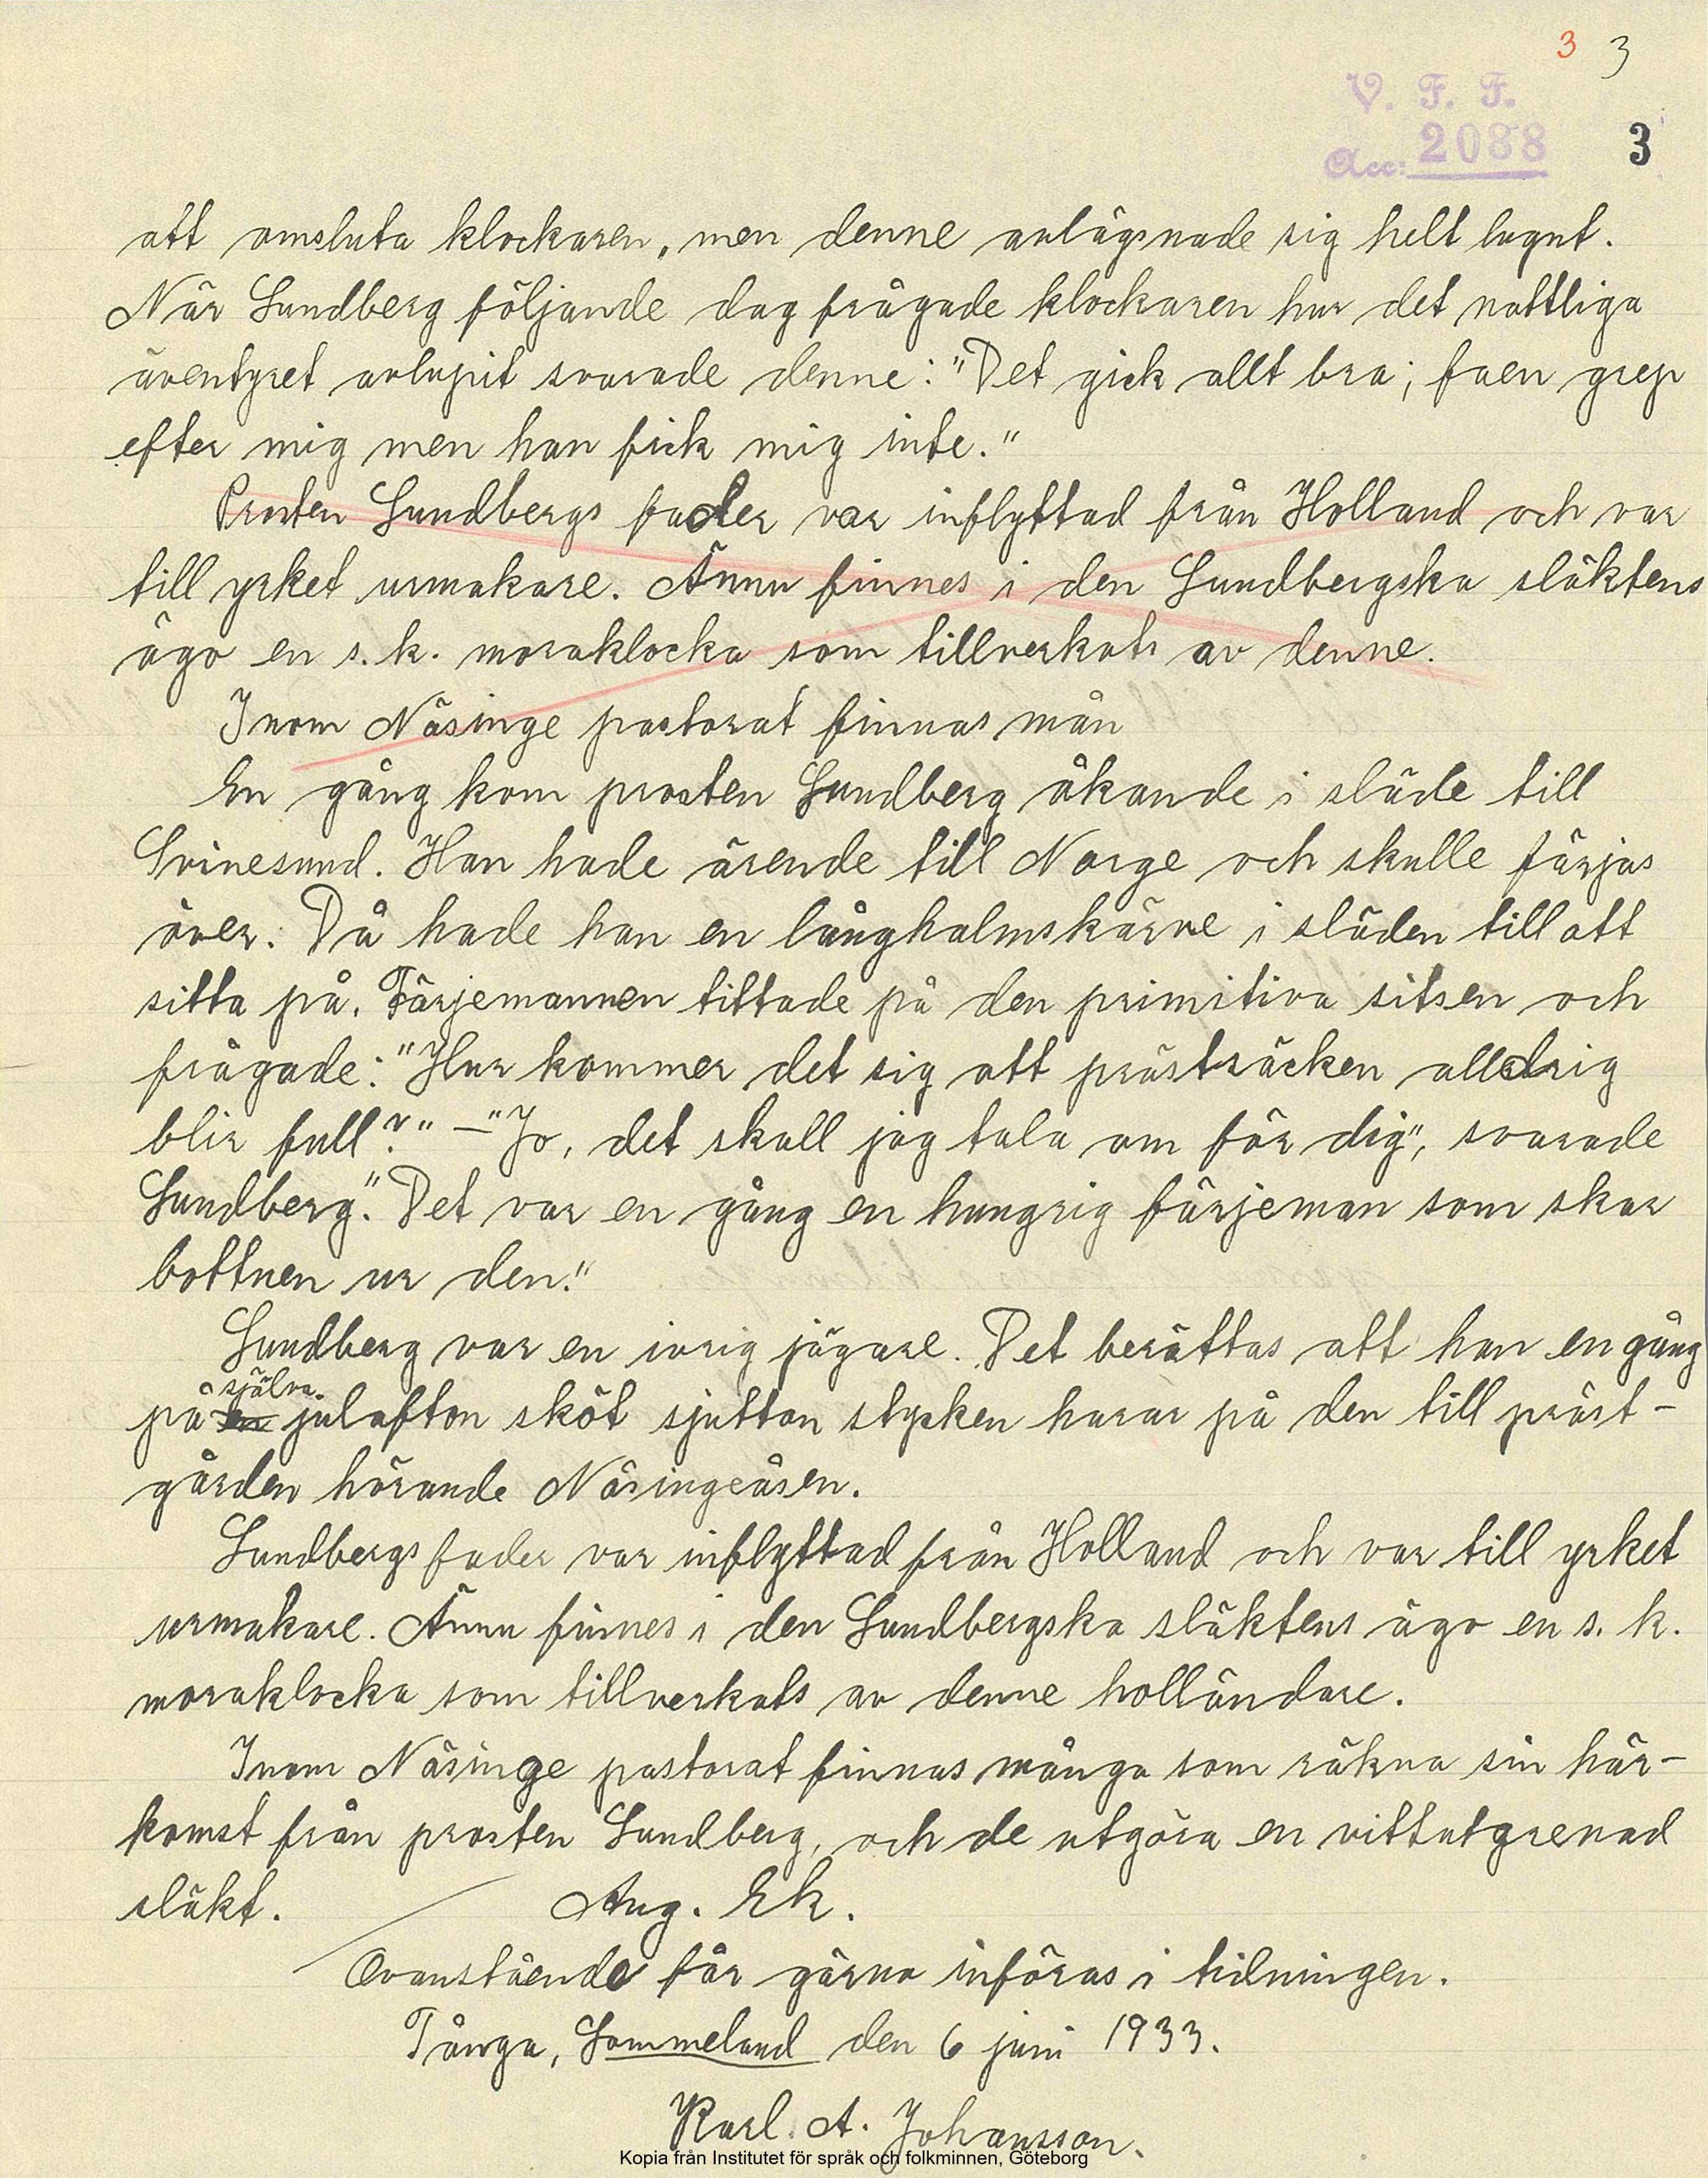 3 3
V. F. F.
Acc: 2088 3
att omsluta klockaren, men denne avlägsnade sig helt lugnt.
När Lundberg följande dag frågade klockaren hur det nattliga
äventyret avlupit svarade denne: "Det gick allt bra; faen grep
efter mig men han fick mig inte."
Prosten Lundbergs fader var inflyttad från Holland och var
till yrket urmakare. Ännu finnes i den Lundbergska släktens
ägo en s. k. moraklocka som tillverkats av denne.
Inom Näsinge pastorat finnas mån
En gång kom prosten Lundberg åkande i släde till
Svinesund. Han hade ärende till Norge och skulle färjas
över. Då hade han en långhalmskärve i släden till att
sitta på. Färjemannen tittade på den primitiva sitsen och
frågade: "Hur kommer det sig att prästsäcken alldrig
blir full?" — "Jo, det skall jag tala om för dig", svarade
Lundberg. "Det var en gång en hungrig färjeman som skar
bottnen ur den."
Lundberg var en ivrig jägare. Det berättas att han en gång
själva
på en julafton sköt sjutton stycken harar på den till präst-
gården hörande Näsingeåsen.
Lundbergs fader var inflyttad från Holland och var till yrket
urmakare. Ännu finnes i den Lundbergska släktens ägo en s. k.
moraklocka som tillverkats av denne holländare.
Inom Näsinge pastorat finnas många som räkna sin här-
komst från prosten Lundberg, och de utgöra en vittutgrenad
släkt. Aug. Ek.
Ovanstående får gärna införas i tidningen.
Tånga, Lommeland den 6 juni 1933.
Karl. A. Johansson.
Kopia från Institutet för språk och folkminnen, Göteborg